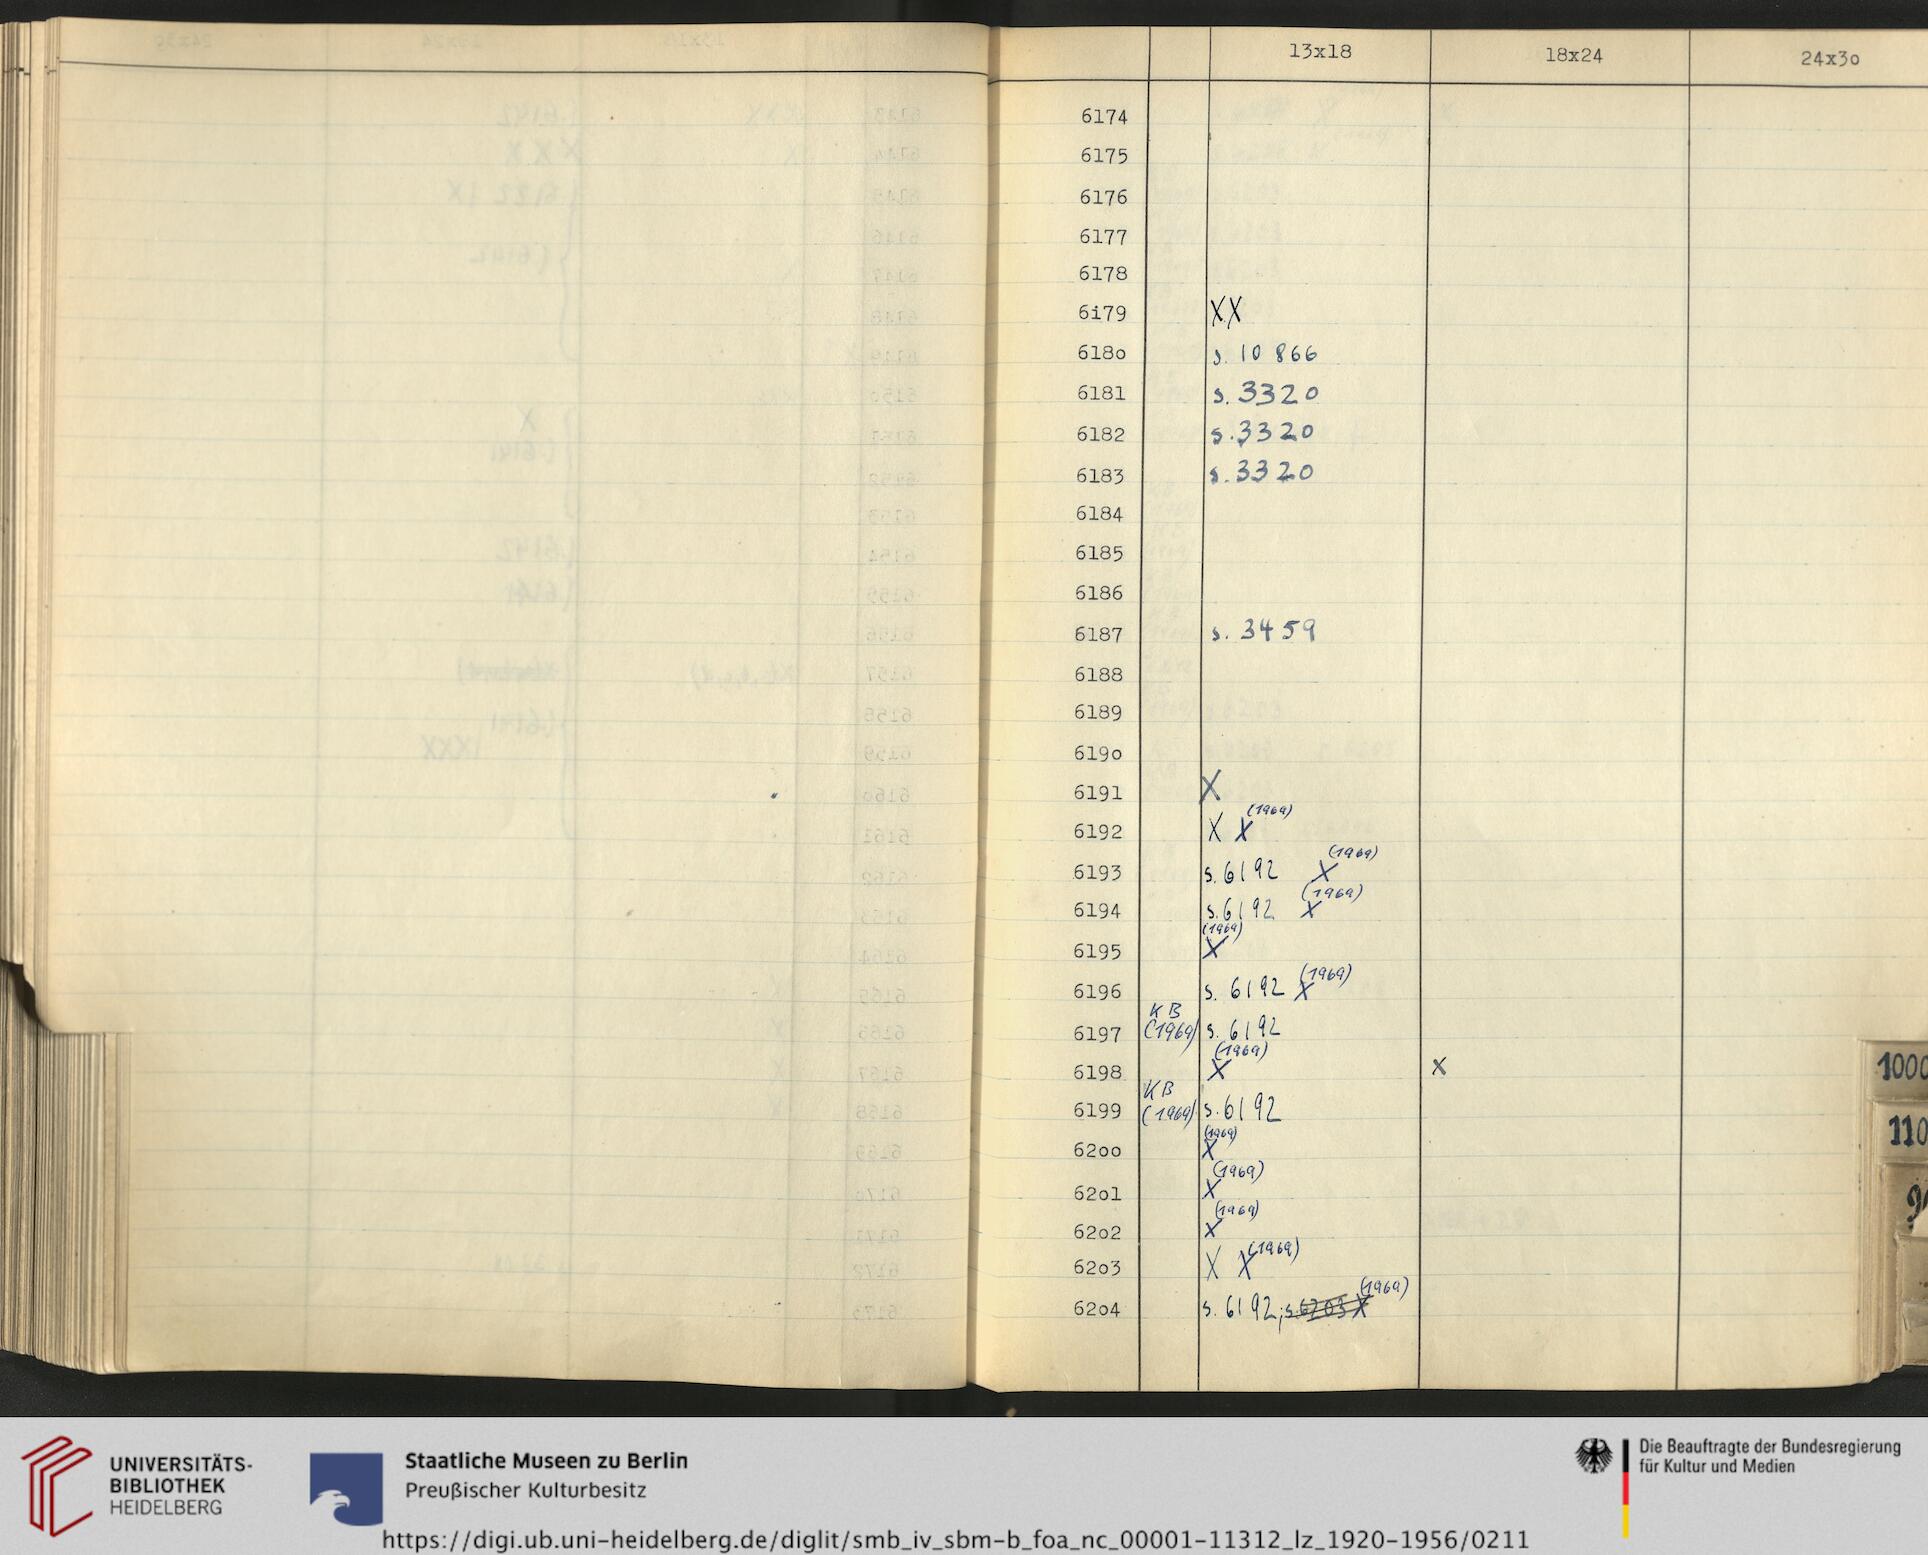 13x18 18x24 24x3o
6174
6175
6176
6177
6178
6i79 XX
618o s. 10 866
6181 s. 3320
6182 s. 3320
6183 s. 3320
6184
6185
6186
6187 s. 3459
6188
6189
619o
6191 X
6192 X X (1969)
6193 s. 6192 X (1969)
6194 s. 6192 X (1969)
6195 X (1969)
6196 s. 6192 X (1969)
6197 KB (1969) s. 6192
6198 X (1969) X
6199 KB (1969) s. 6192
62oo X (1969)
62o1 X (1969)
62o2 X (1969)
62o3 X X (1969)
62o4 s. 6192; s. 6203 X (1969)
1000
110
UNIVERSITÄTS-
BIBLIOTHEK
HEIDELBERG
Staatliche Museen zu Berlin
Preußischer Kulturbesitz
Die Beauftragte der Bundesregierung
für Kultur und Medien
https://digi.ub.uni-heidelberg.de/diglit/smb_iv_sbm-b_foa_nc_00001-11312_lz_1920-1956/0211